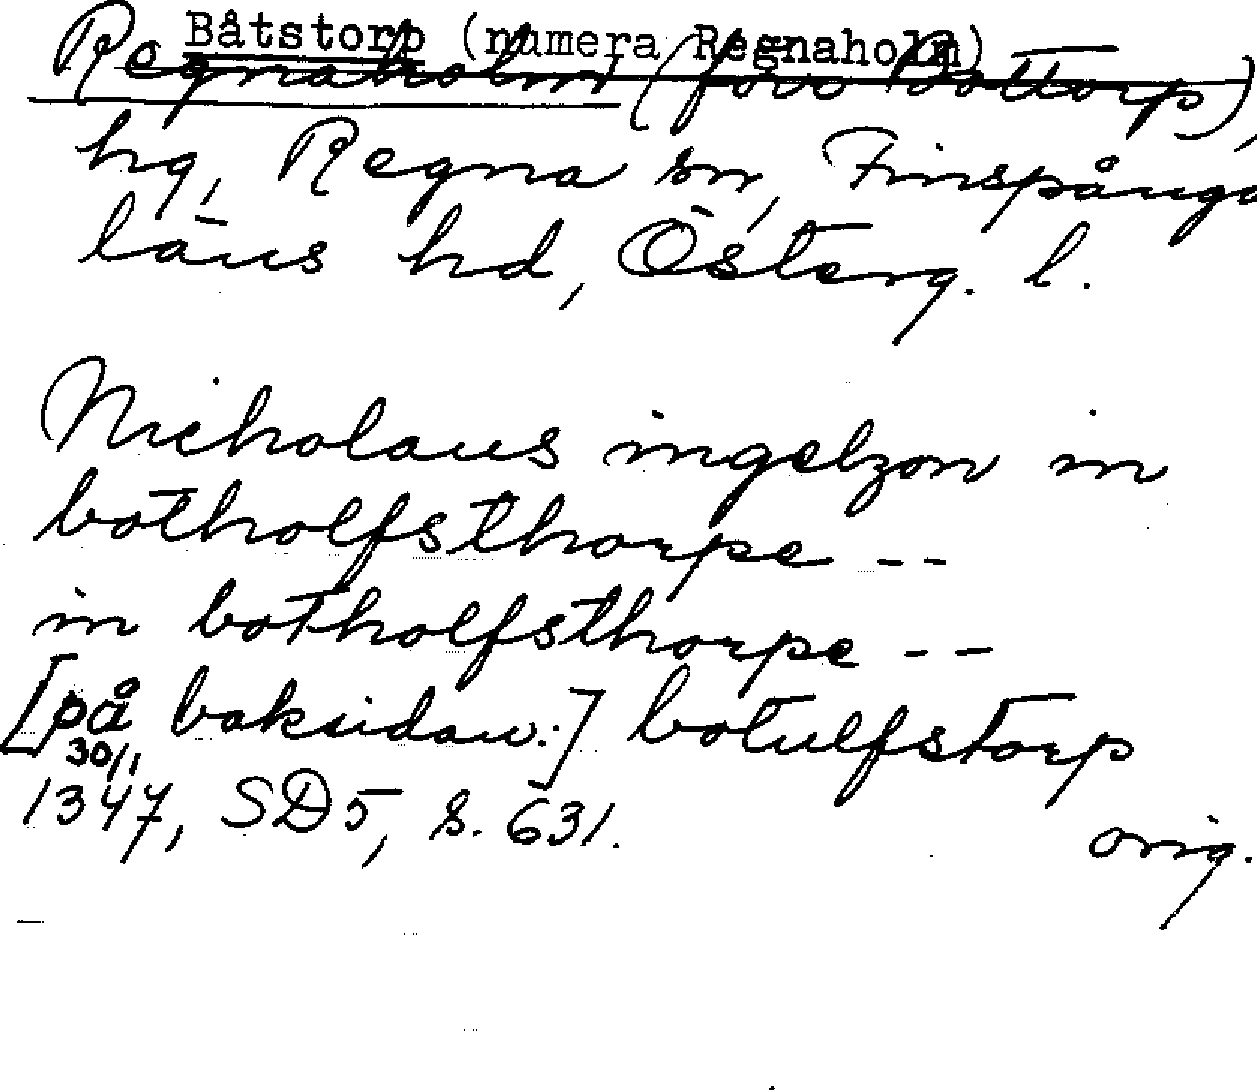 Båtstorp (numera Regnaholm)
Regnaholm (förr Bottorp),
hg, Regna sn, Finspånga
läns hd, Österg. l.
Nicholaus ingelzon in
botholfsthorpe --
in botholfsthorpe --
[på baksidan:] botulfstorp
30/1
1347, SD5, s. 631.
orig.